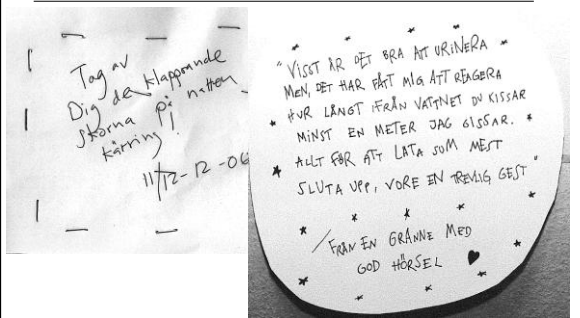 Tag av
Dig de klapprande
skorna på natten
kärring!
11/12-12-06
"VISST ÄR DET BRA ATT URINERA
MEN, DET HAR FÅTT MIG ATT REAGERA
HUR LÅNGT IFRÅN VATTNET DU KISSAR
MINST EN METER JAG GISSAR.
ALLT FÖR ATT LÅTA SOM MEST
SLUTA UPP, VORE EN TREVLIG GEST"
/FRÅN EN GRANNE MED
GOD HÖRSEL